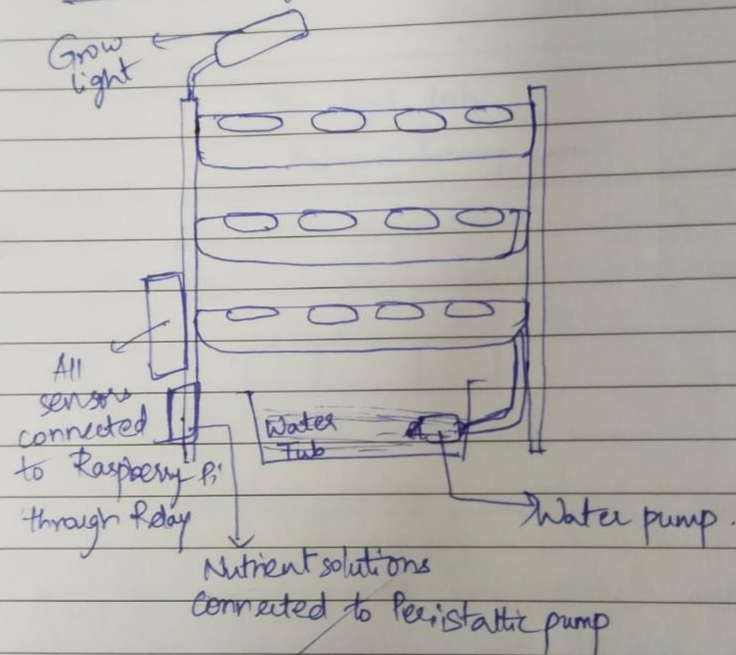 Grow
light
All
sensors
connected
to Raspberry Pi
through Relay
Water
Tub
Water pump.
Nutrient solutions
connected to Peristaltic pump